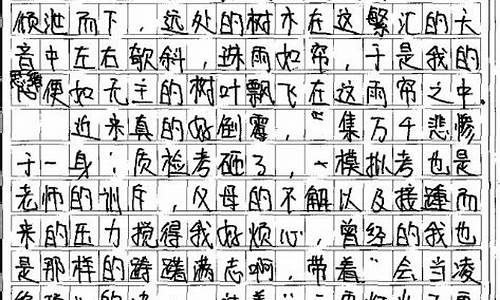 倾泄而下，远处的树木在这繁汇的大
音中左右欹斜，珠雨如帘，于是我的
思绪便如无主的树叶飘飞在这雨帘之中.
近来真的好倒霉，“集万千悲惨
于一身：质检考砸了，一模拟考也是
老师的训斥，父母的不解以及接踵而
来的压力搅得我好烦心，曾经的我也
是那样的踌躇满志啊，带着“会当凌